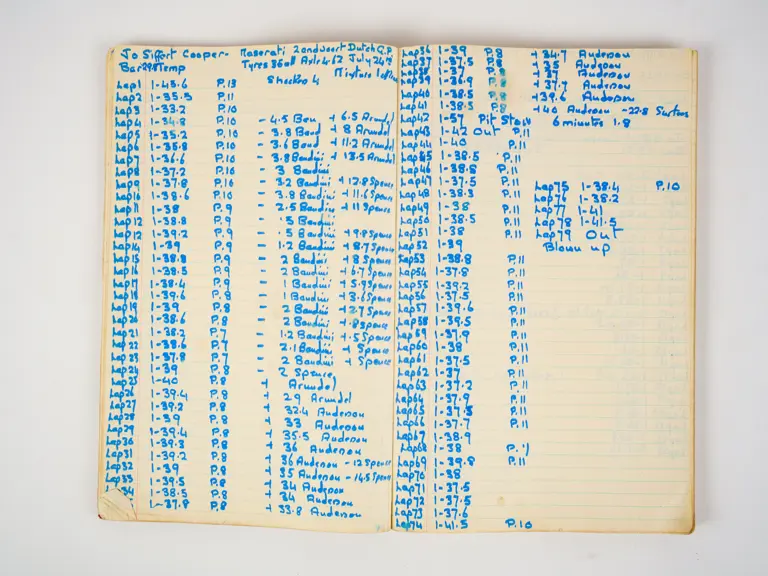 Jo Siffert Cooper- Maserati Zandvoort Dutch G.P
Bar 29.8 Temp Tyres 36 all Axle 4.62 July 24th
Shockers 4 Mixture
Lap1 1-43.6 P.13
Lap2 1-35.5 P.11
Lap3 1-33.2 P.10
Lap4 1-34.8 P.10 - 4.5 Bon + 6.5 Arundel
Lap5 1-35.2 P.10 - 3.8 Band + 8 Arundel
Lap6 1-35.8 P.10 - 3.6 Band + 11.2 Arundel
Lap7 1-36.6 P.10 - 3.8 Bandini + 13.5 Arundel
Lap8 1-37.2 P.10 - 3 Bandini
Lap9 1-37.8 P.10 - 3.2 Bandini + 12.8 Spence
Lap10 1-38.6 P.10 - 3.8 Bandini + 11.6 Spence
Lap11 1-38 P.9 - 2.5 Bandini + 11 Spence
Lap12 1-38.8 P.9 - .5 Bandini
Lap13 1-39.2 P.9 - .5 Bandini + 9.8 Spence
Lap14 1-39 P.9 - 1.2 Bandini + 8.7 Spence
Lap15 1-38.8 P.9 - 2 Bandini + 8 Spence
Lap16 1-38.5 P.9 - 2 Bandini + 6.7 Spence
Lap17 1-38.4 P.9 - 1 Bandini + 5.9 Spence
Lap18 1-39.6 P.8 - 1 Bandini + 3.6 Spence
Lap19 1-39 P.8 - 2 Bandini + 2.7 Spence
Lap20 1-38.6 P.8 - 2 Bandini + .8 Spence
Lap21 1-38.2 P.7 - 1.2 Bandini + .5 Spence
Lap22 1-38.6 P.7 - 2.1 Bandini + Spence
Lap23 1-37.8 P.7 - 2 Bandini + Spence
Lap24 1-39 P.8 - 2 Spence
Lap25 1-40 P.8 + Arundel
Lap26 1-39.4 P.8 + 29 Arundel
Lap27 1-39.2 P.8 + 32.4 Anderson
Lap28 1-39 P.8 + 33 Anderson
Lap29 1-39.4 P.8 + 35.5 Anderson
Lap30 1-39.3 P.8 + 36 Anderson
Lap31 1-39.2 P.8 + 36 Anderson - 12 Spence
Lap32 1-39 P.8 + 35 Anderson - 14.5 Spence
Lap33 1-39.5 P.8 + 34 Anderson
34 1-38.5 P.8 + 34 Anderson
1-37.8 P.8 + 33.8 Anderson
Lap36 1-39 P.8 + 34.7 Anderson
Lap37 1-37.5 P.8 + 35 Anderson
Lap38 1-37 P.8 + 37 Anderson
Lap39 1-36.9 P.8 + 37.7 Anderson
Lap40 1-38.5 P.8 + 39.6 Anderson
Lap41 1-38.5 P.8 + 40 Anderson - 22.8 Surtees
Lap42 1-57 Pit Stop 6 minutes 1.8
Lap43 1-42 Out P.11
Lap44 1-40 P.11
Lap45 1-38.5 P.11
Lap46 1-38.8 P.11
Lap47 1-37.5 P.11
Lap48 1-38.3 P.11
Lap49 1-38 P.11
Lap50 1-38.5 P.11
Lap51 1-38 P.11
Lap52 1-39
Lap53 1-38.8 P.11
Lap54 1-37.8 P.11
Lap55 1-39.2 P.11
Lap56 1-37.5 P.11
Lap57 1-39.6 P.11
Lap58 1-39.5 P.11
Lap59 1-37.9 P.11
Lap60 1-38 P.11
Lap61 1-37.5 P.11
Lap62 1-37 P.11
Lap63 1-37.2 P.11
Lap64 1-37.9 P.11
Lap65 1-37.5 P.11
Lap66 1-37.7 P.11
Lap67 1-38.9
Lap68 1-38 P.11
Lap69 1-39.8 P.11
Lap70 1-38
Lap71 1-37.5
Lap72 1-37.5
Lap73 1-37.6
Lap74 1-41.5 P.10
Lap75 1-38.4 P.10
Lap76 1-38.2
Lap77 1-41
Lap78 1-41.5
Lap79 Out
Blown up